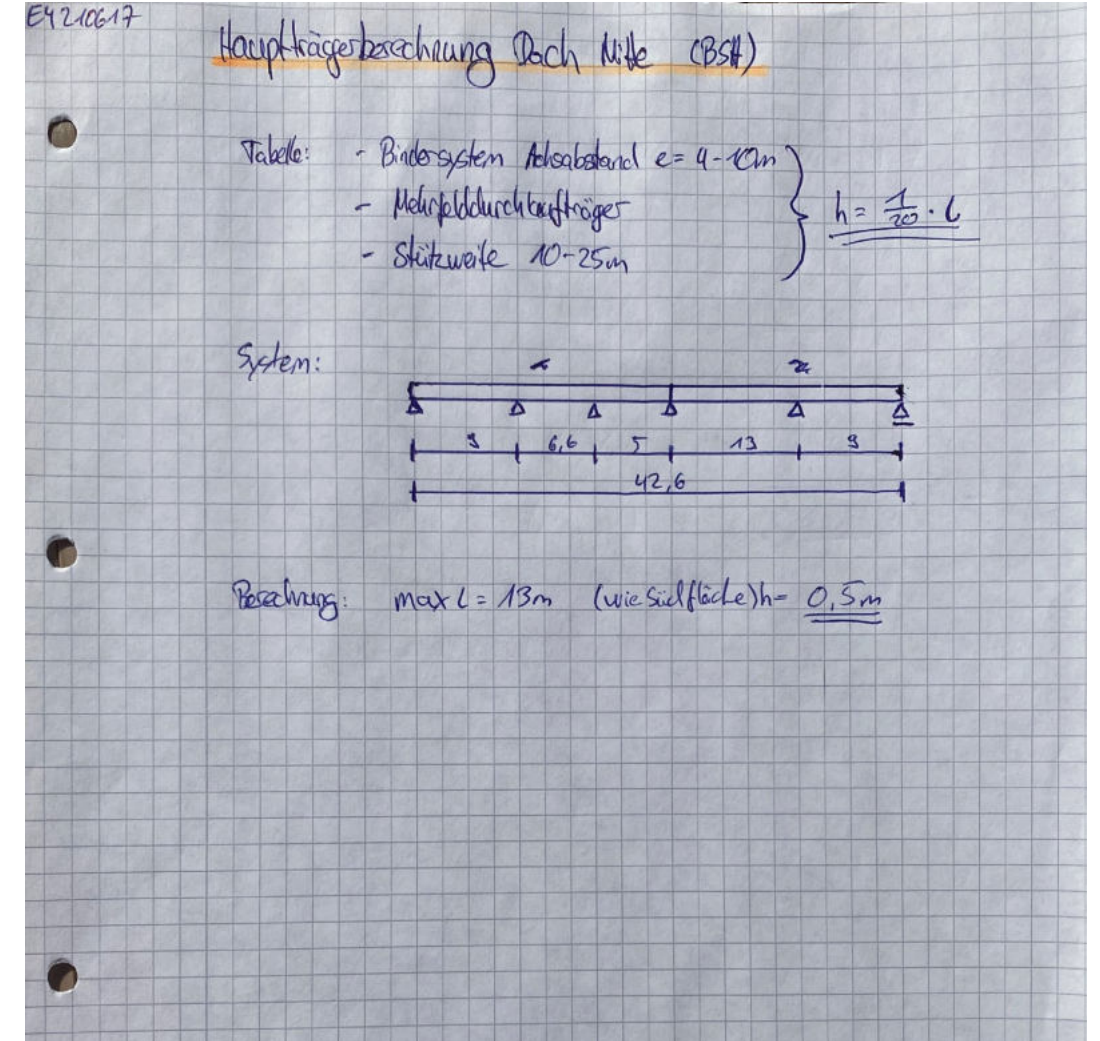 E4 210617
Hauptträgerberechnung Dach Mitte (BSH)
Tabelle: - Bindersystem Achsabstand e = 4-10m
- Mehrfelddurchlaufträger
h = 1/20 · l
- Stützweite 10-25m
System:
9 6,6 5 13 9
42,6
Berechnung: max l = 13m (wie Südfläche) h = 0,5m